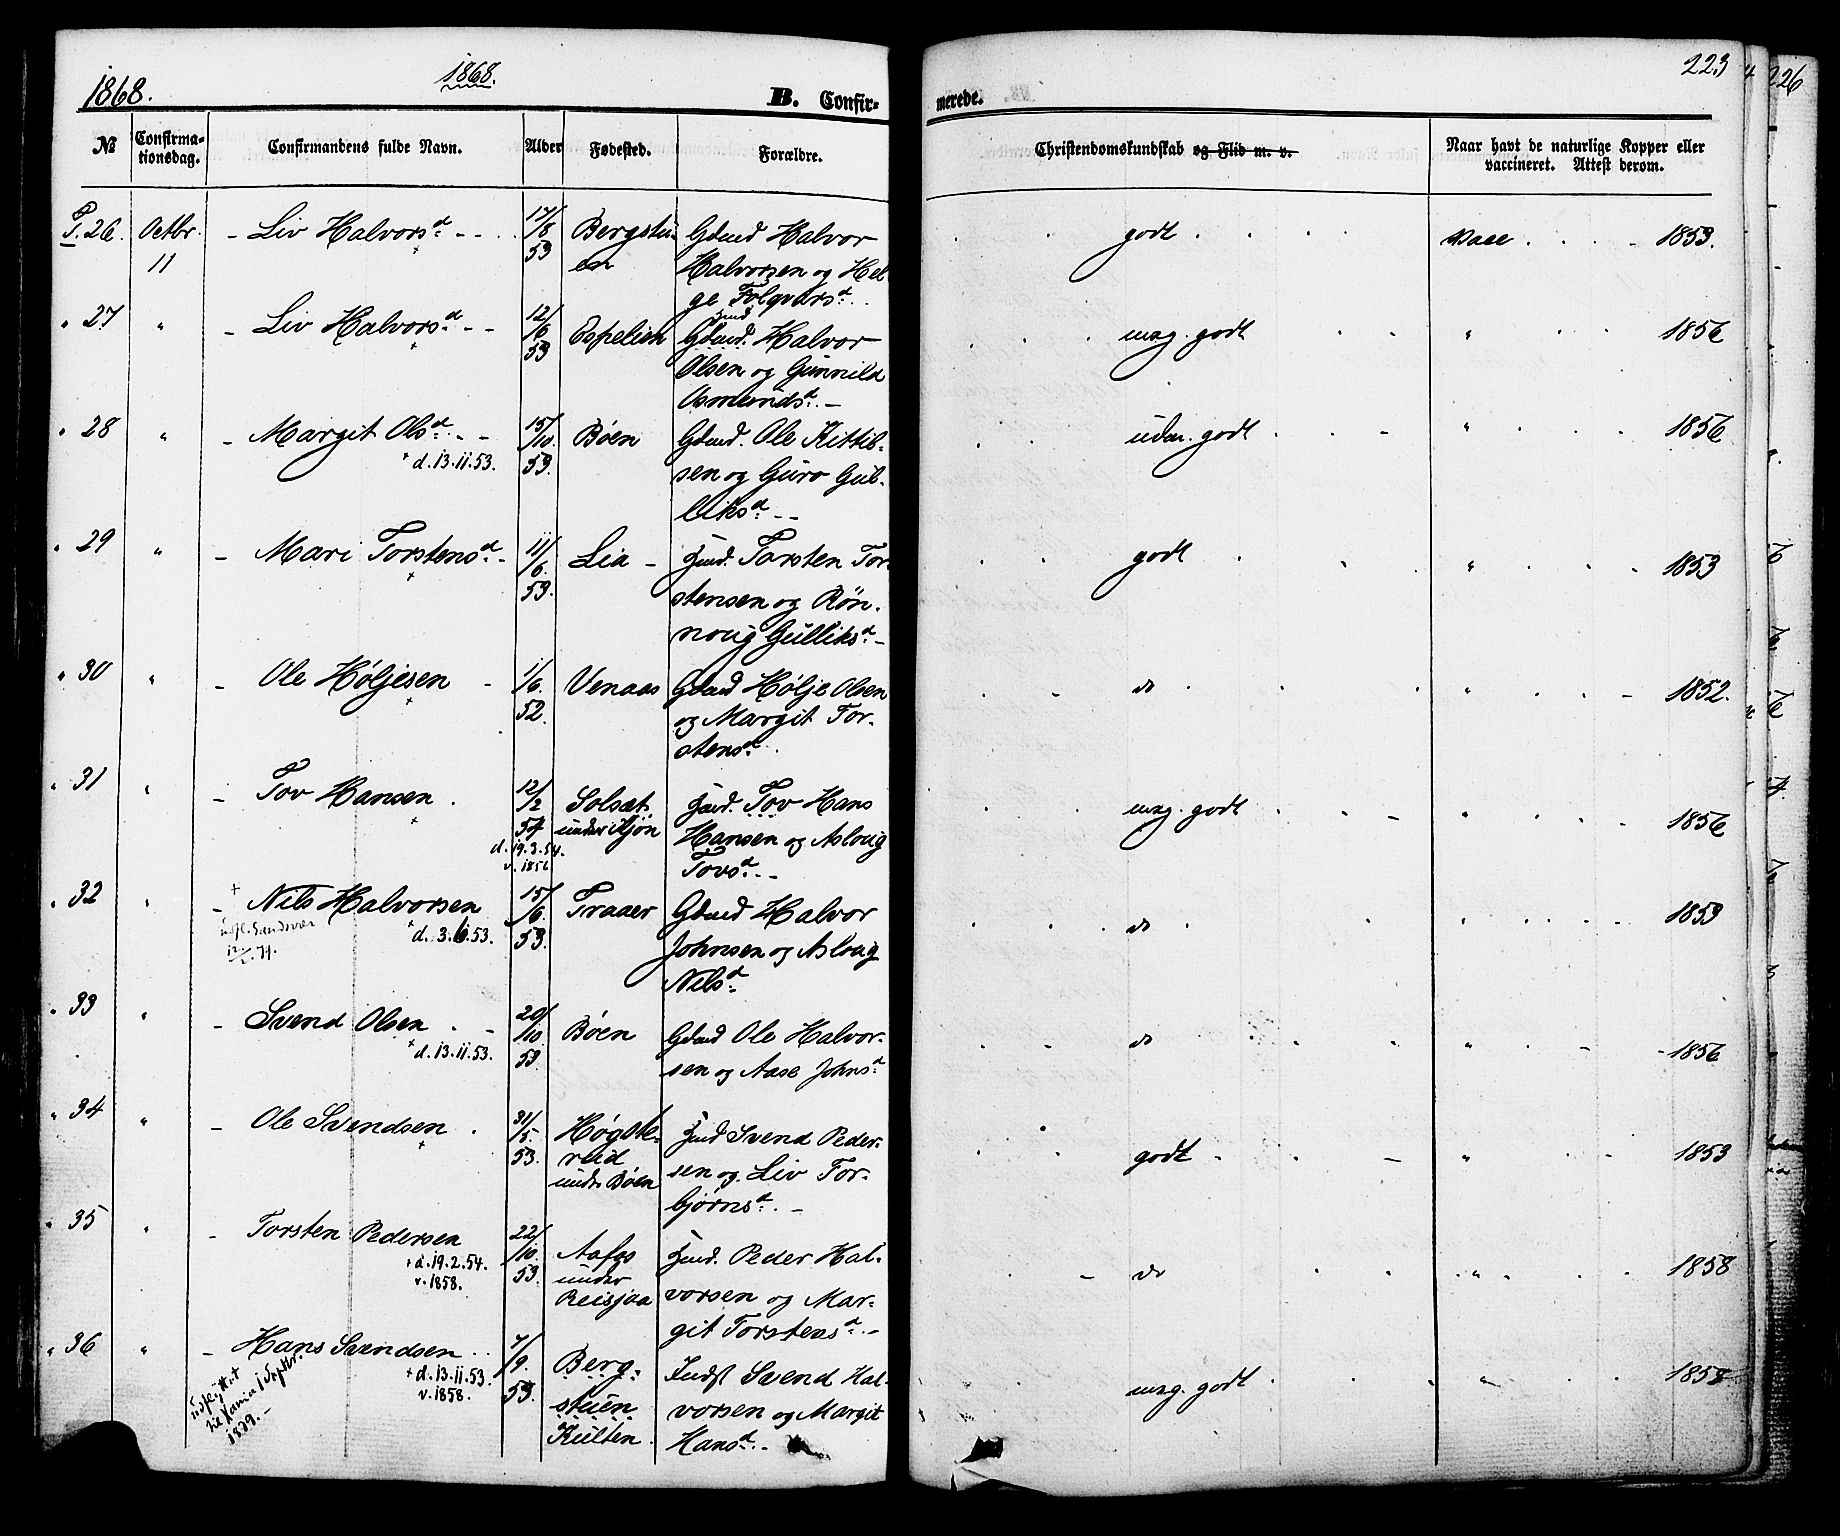 1868.
1868.
B. Confir-
merede.
223
226
№
Confirma-
tionsdag.
Confirmandens fulde Navn.
Alder
Fødested.
Forældre.
Christendomskundskab og Flid m. v.
Naar havt de naturlige Kopper eller
vaccineret. Attest derom.
P. 26. Octbr. 11 - Liv Halvorsd. - - 17/8 53 Bergstu-
en
Gdmd Halvor
Halvorsen og Hel
ge Folqvarsd.
godt Vacc - 1853.
" 27 " - Liv Halvorsd. - - 12/6 53 Espelien
Hmd
Gdmd. Halvor
Olsen og Gunnild
Osmundsd. -
mag. godt " 1856
" 28 " - Margit Olsd. - - 15/10 53. Bøen
+ d. 13.11.53.
Gdmd. Ole Kittil-
sen og Guro Gul-
liksd. - -
udm. godt " 1856
" 29 " - Mari Torstensd. - 11/6. 53. Lia -
Hmd. Torsten Tor
stensen og Røn-
noug Gulliksd. -
godt " 1853
" 30 " - Ole Høljesen - 1/6. 52. Venaas
Gdmd Hølje Olsen
og Margit Tor-
stensd.
do " 1852.
" 31 " - Tov Hansen. 12/2 54 Solsæt
under Kjøn
d. 19.3.54.
v. 1856
Hmd. Tov Hans
Hansen og Asloug
Tovsd. -
mag. godt " 1856
" 32 " - Nils Halvorsen 15/6. 53. Traaer
+ d. 3.6.53.
udfl. Sandsvær
79.
Gdmd Halvor
Johnsen og Asloug
Nilsd.
do " 1853
" 33 " - Svend Olsen - 20/10 53 Bøen
+ d. 13.11.53.
Gdmd Ole Halvor-
sen og Aase Johnsd.
do " 1856
" 34 " - Ole Svendsen. 31/5. 53. Høgste-
reid
under Bøen
Hmd Svend Peder-
sen og Liv Tor-
bjørnsd. -
godt " 1853
" 35 " - Torsten Pedersen 22/10. 53.
+ d. 19.2.54.
v. 1858.
under
Reisjaa
Hmd. Peder Hal-
vorsen og Mar-
git Torstensd. -
do " 1858
" 36 " - Hans Svendsen 7/9. 53. Berg-
stuen
Kulten.
+ d. 13.11.53.
v. 1858.
udflyttet
til Xania i Septbr.
1879. -
Indst Svend Hal
vorsen og Margit
Hansd. -
mag. godt " 1858